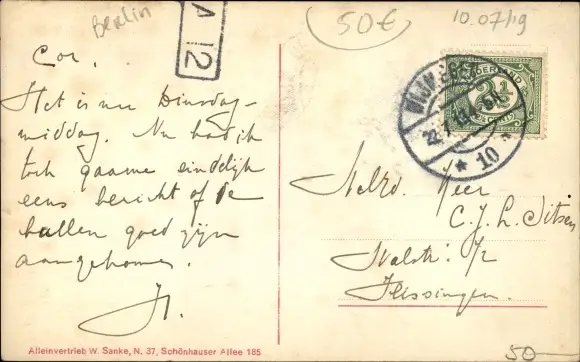 Berlin
A 12
50€
10.07/19
Cor.
Het is nu Dinsdag-
middag. Nu had ik
toch gaarne eindelijk
eens bericht of de
ballen goed zijn
aangekomen.
NEDERLAND
2½
CENT
NIJMEGEN
10
WelEd. Heer
C. J. L.
Walstr. 1/2
Vlissingen.
Alleinvertrieb W. Sanke, N. 37, Schönhauser Allee 185
50